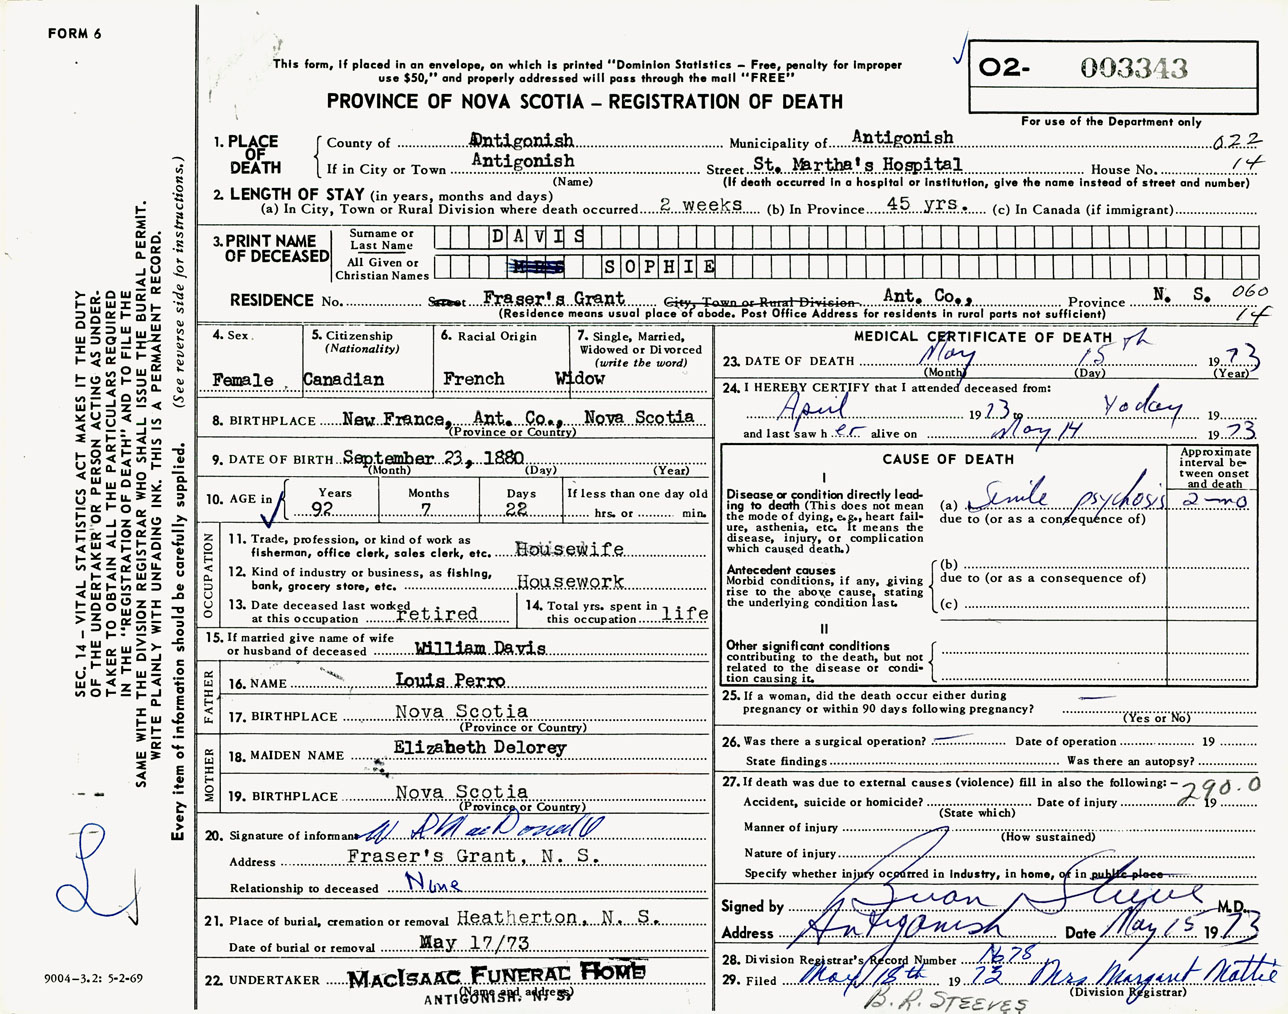 FORM 6
This form, if placed in an envelope, on which is printed "Dominion Statistics – Free, penalty for improper
use $50," and properly addressed will pass through the mail "FREE"
PROVINCE OF NOVA SCOTIA – REGISTRATION OF DEATH
O2- 003343
For use of the Department only
1. PLACE OF DEATH
County of Antigonish Municipality of Antigonish 022
If in City or Town Antigonish Street St. Martha's Hospital House No. 14
(Name) (If death occurred in a hospital or institution, give the name instead of street and number)
2. LENGTH OF STAY (in years, months and days)
(a) In City, Town or Rural Division where death occurred 2 weeks (b) In Province 45 yrs. (c) In Canada (if immigrant)
3. PRINT NAME OF DECEASED
Surname or Last Name DAVIS
All Given or Christian Names SOPHIE
RESIDENCE No. Street Fraser's Grant City, Town or Rural Division Ant. Co., Province N. S. 060
(Residence means usual place of abode. Post Office Address for residents in rural parts not sufficient) 14
4. Sex Female
5. Citizenship (Nationality) Canadian
6. Racial Origin French
7. Single, Married, Widowed or Divorced (write the word) Widow
8. BIRTHPLACE New France, Ant. Co., Nova Scotia
(Province or Country)
9. DATE OF BIRTH September 23, 1880
(Month) (Day) (Year)
10. AGE in Years 92 Months 7 Days 22 If less than one day old hrs. or min.
OCCUPATION
11. Trade, profession, or kind of work as fisherman, office clerk, sales clerk, etc. Housewife
12. Kind of industry or business, as fishing, bank, grocery store, etc. Housework
13. Date deceased last worked at this occupation retired
14. Total yrs. spent in this occupation life
15. If married give name of wife or husband of deceased William Davis
FATHER
16. NAME Louis Perro
17. BIRTHPLACE Nova Scotia
(Province or Country)
MOTHER
18. MAIDEN NAME Elizabeth Delorey
19. BIRTHPLACE Nova Scotia
(Province or Country)
20. Signature of informant W R MacDonald
Address Fraser's Grant, N. S.
Relationship to deceased None
21. Place of burial, cremation or removal Heatherton, N. S.
Date of burial or removal May 17/73
22. UNDERTAKER MACISAAC FUNERAL HOME
(Name and address)
ANTIGONISH, N. S.
MEDICAL CERTIFICATE OF DEATH
23. DATE OF DEATH May 15th 1973
(Month) (Day) (Year)
24. I HEREBY CERTIFY that I attended deceased from:
April 1973 to today 19
and last saw her alive on May 14 1973
CAUSE OF DEATH
Approximate interval between onset and death
I
Disease or condition directly leading to death (This does not mean the mode of dying, e.g., heart failure, asthenia, etc. It means the disease, injury, or complication which caused death.)
(a) Senile psychosis 2-mo
due to (or as a consequence of)
Antecedent causes
Morbid conditions, if any, giving rise to the above cause, stating the underlying condition last.
(b)
due to (or as a consequence of)
(c)
II
Other significant conditions
contributing to the death, but not related to the disease or condition causing it.
25. If a woman, did the death occur either during pregnancy or within 90 days following pregnancy? —
(Yes or No)
26. Was there a surgical operation? — Date of operation 19
State findings Was there an autopsy?
27. If death was due to external causes (violence) fill in also the following: – 290.0
Accident, suicide or homicide? Date of injury 19
(State which)
Manner of injury
(How sustained)
Nature of injury
Specify whether injury occurred in Industry, in home, or in public place
Signed by M.D.
Address Antigonish Date May 15 1973
28. Division Registrar's Record Number No 78
29. Filed May 18th 1973 Mrs Margaret Mattie
(Division Registrar)
B. R. STEEVES
SEC. 14 – VITAL STATISTICS ACT MAKES IT THE DUTY
OF THE UNDERTAKER OR PERSON ACTING AS UNDER-
TAKER TO OBTAIN ALL THE PARTICULARS REQUIRED
IN THE "REGISTRATION OF DEATH" AND TO FILE THE
SAME WITH THE DIVISION REGISTRAR WHO SHALL ISSUE THE BURIAL PERMIT.
WRITE PLAINLY WITH UNFADING INK. THIS IS A PERMANENT RECORD.
Every item of information should be carefully supplied. (See reverse side for instructions.)
9004-3.2: 5-2-69